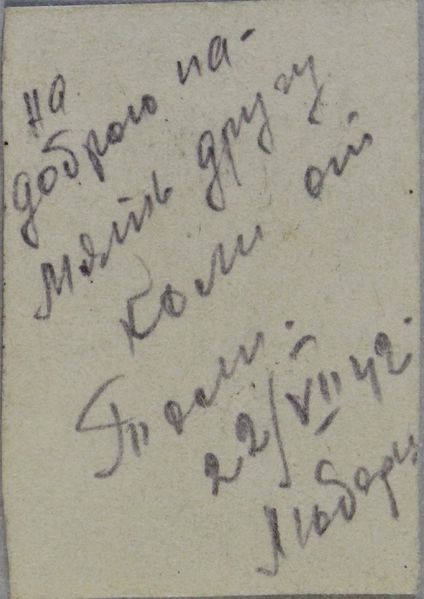 на
доброю па-
мять другу
Коли от
Толи.
22/VII 42.